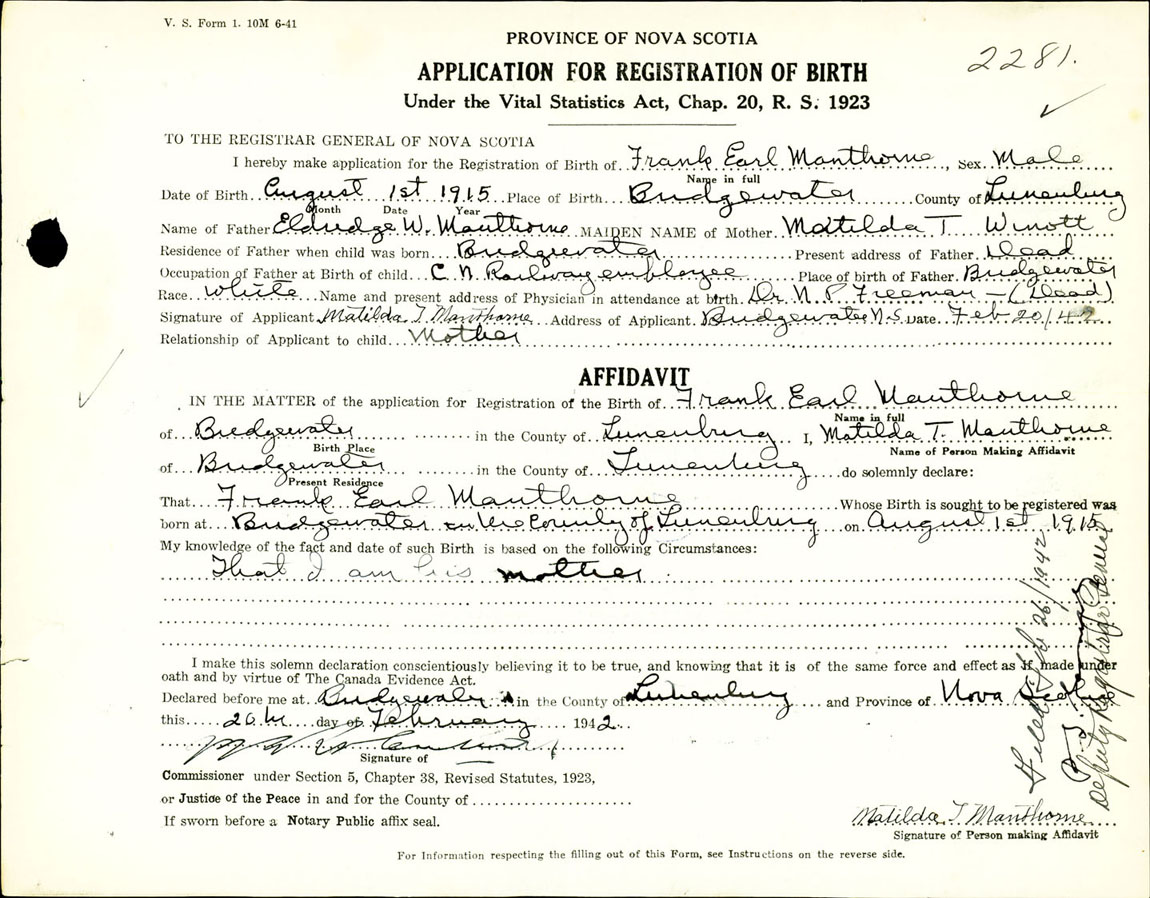 V. S. Form 1. 10M 6-41
PROVINCE OF NOVA SCOTIA
2281.
APPLICATION FOR REGISTRATION OF BIRTH
Under the Vital Statistics Act, Chap. 20, R. S. 1923
TO THE REGISTRAR GENERAL OF NOVA SCOTIA
I hereby make application for the Registration of Birth of Frank Earl Manthorne, Sex Male
Name in full
Date of Birth August 1st 1915 Place of Birth Bridgewater County of Lunenburg
Month Date Year
Name of Father Eldridge W. Manthorne MAIDEN NAME of Mother Matilda T Winott
Residence of Father when child was born Bridgewater Present address of Father Dead
Occupation of Father at Birth of child C N Railway employee Place of birth of Father Bridgewater
Race White Name and present address of Physician in attendance at birth. Dr N P Freeman - (Dead)
Signature of Applicant Matilda T Manthorne Address of Applicant. Bridgewater N.S. Date Feb 20/42
Relationship of Applicant to child Mother
AFFIDAVIT
IN THE MATTER of the application for Registration of the Birth of Frank Earl Manthorne
Name in full
of Bridgewater in the County of Lunenburg I, Matilda T. Manthorne
Birth Place Name of Person Making Affidavit
of Bridgewater in the County of Lunenburg do solemnly declare:
Present Residence
That Frank Earl Manthorne Whose Birth is sought to be registered was
born at Bridgewater in the County of Lunenburg on August 1st 1915
My knowledge of the fact and date of such Birth is based on the following Circumstances:
That I am his mother
I make this solemn declaration conscientiously believing it to be true, and knowing that it is of the same force and effect as if made under
oath and by virtue of The Canada Evidence Act.
Declared before me at Bridgewater in the County of Lunenburg and Province of Nova Scotia
this 20th day of February 1942.
Signature of
Commissioner under Section 5, Chapter 38, Revised Statutes, 1923,
or Justice of the Peace in and for the County of
If sworn before a Notary Public affix seal.
Matilda T Manthorne
Signature of Person making Affidavit
For Information respecting the filling out of this Form, see Instructions on the reverse side.
Filed 26/1942
Deputy Registrar General